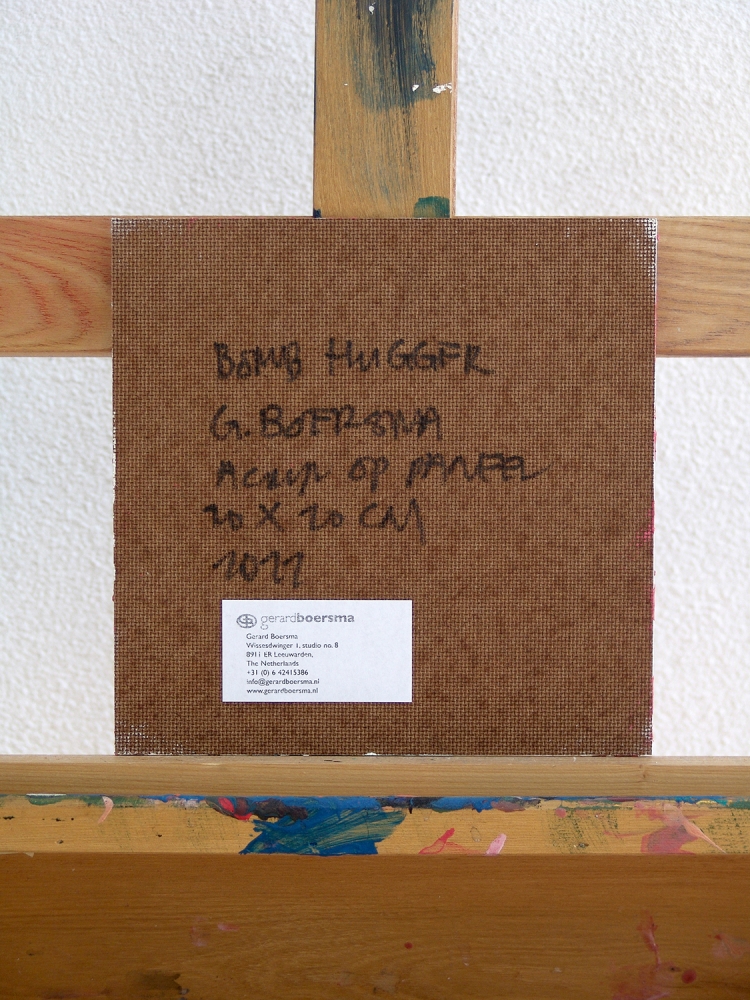 BOMB HUGGER
G. BOERSMA
ACRYL OP PANEEL
20 X 20 CM
2022
gerardboersma
Gerard Boersma
Wissesdwinger 1, studio no. 8
8911 ER Leeuwarden,
The Netherlands
+31 (0) 6 42415386
info@gerardboersma.nl
www.gerardboersma.nl